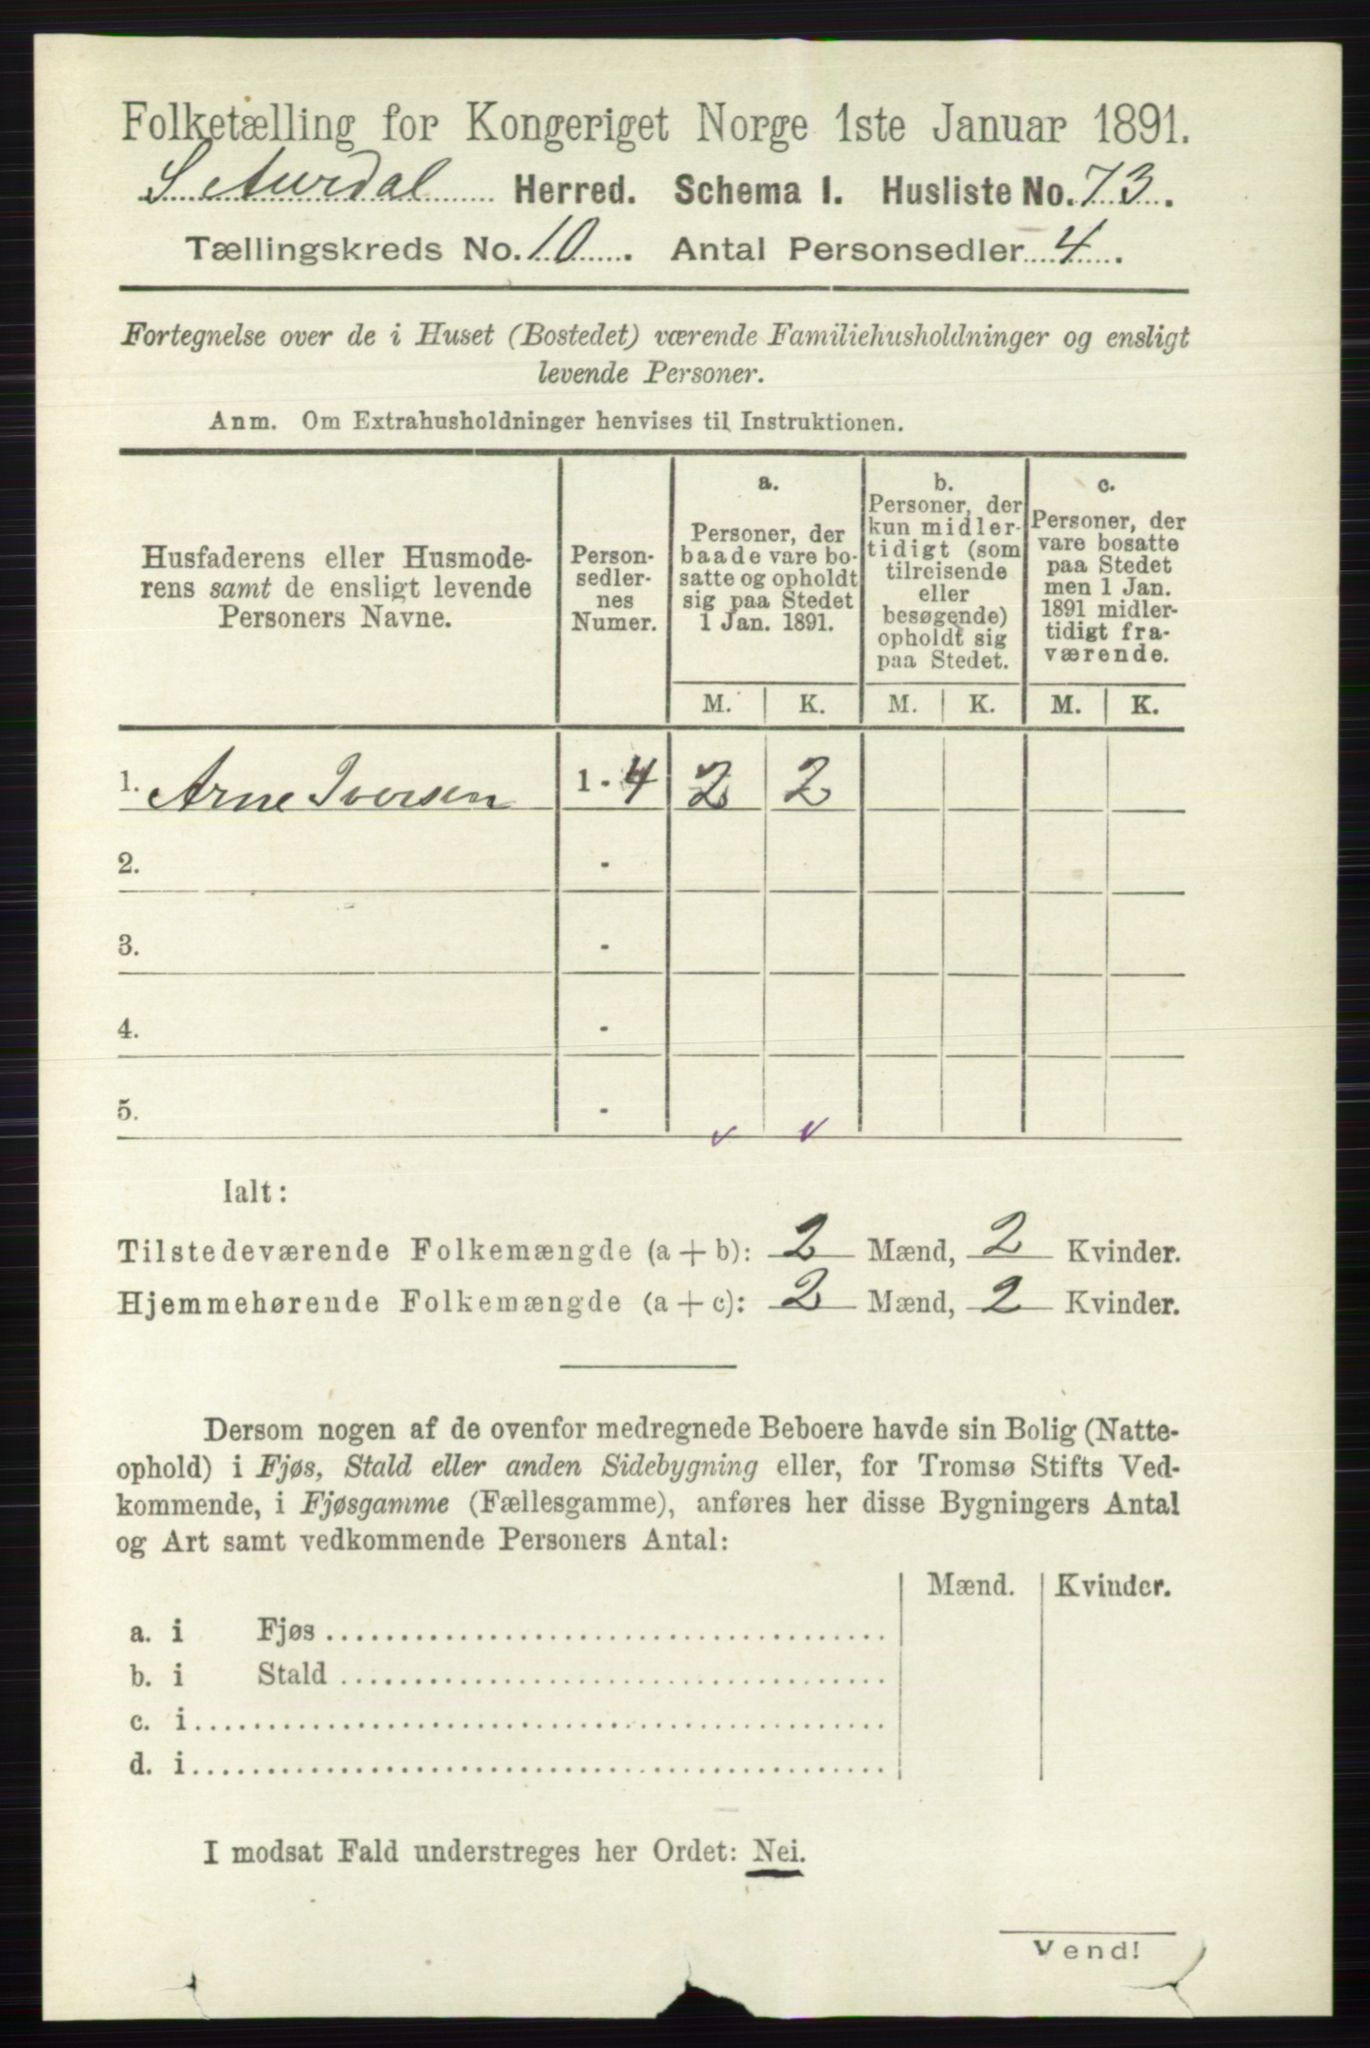 Folketælling for Kongeriget Norge 1ste Januar 1891.
S. Aurdal Herred. Schema I. Husliste No. 73.
Tællingskreds No. 10. Antal Personsedler 4.
Fortegnelse over de i Huset (Bostedet) værende Familiehusholdninger og ensligt
levende Personer.
Anm. Om Extrahusholdninger henvises til Instruktionen.
Husfaderens eller Husmode-
rens samt de ensligt levende
Personers Navne.
Person-
sedler-
nes
Numer.
a.
Personer, der
baade vare bo-
satte og opholdt
sig paa Stedet
1 Jan. 1891.
b.
Personer, der
kun midler-
tidigt (som
tilreisende
eller
besøgende)
opholdt sig
paa Stedet.
c.
Personer, der
vare bosatte
paa Stedet
men 1 Jan.
1891 midler-
tidigt fra-
værende.
M. K. M. K. M. K.
1. Arne Iversen 1 - 4 2 2
2. -
3. -
4. -
5. -
Ialt:
Tilstedeværende Folkemængde (a + b): 2 Mænd, 2 Kvinder.
Hjemmehørende Folkemængde (a + c): 2 Mænd, 2 Kvinder.
Dersom nogen af de ovenfor medregnede Beboere havde sin Bolig (Natte-
ophold) i Fjøs, Stald eller anden Sidebygning eller, for Tromsø Stifts Ved-
kommende, i Fjøsgamme (Fællesgamme), anføres her disse Bygningers Antal
og Art samt vedkommende Personers Antal:
Mænd. Kvinder.
a. i Fjøs
b. i Stald
c. i
d. i
I modsat Fald understreges her Ordet: Nei.
Vend!